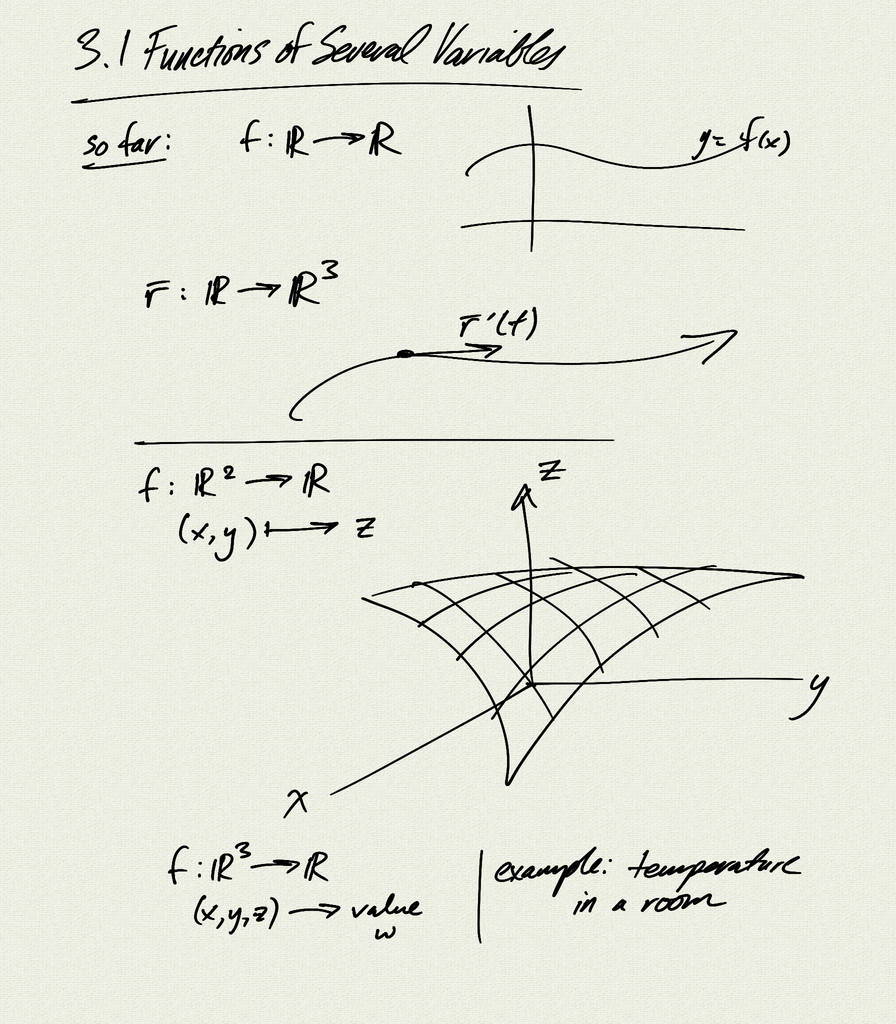 3.1 Functions of Several Variables
so far: f: ℝ → ℝ
y = f(x)
r̄ : ℝ → ℝ³
r̄'(t)
f: ℝ² → ℝ
(x,y) ↦ z
z
y
x
f: ℝ³ → ℝ
(x,y,z) → value
w
example: temperature
in a room